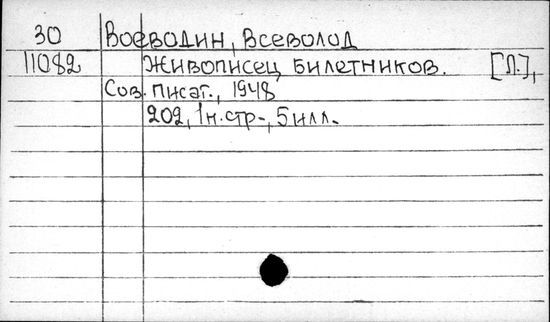 30 Воеводин, Всеволод
11082 Живописец Билетников. [Л.],
Сов. писат., 1948
202, 1 н. стр., 5 илл.